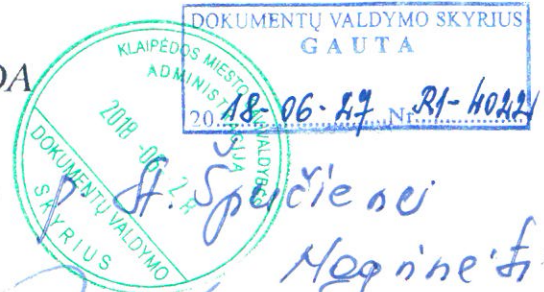 DOKUMENTŲ VALDYMO SKYRIUS
GAUTA
2018-06-27 Nr. R1-
DA
KLAIPĖDOS MIESTO SAVIVALDYBĖS
ADMINISTRACIJA
2018 -06-
DOKUMENTŲ VALDYMO
SKYRIUS
p. St. Špučienei